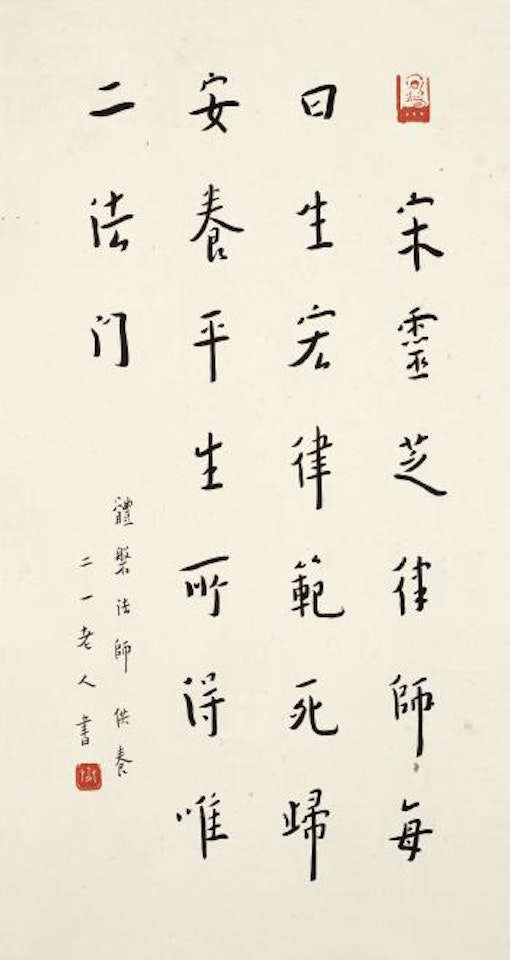 宋靈芝律師每
曰生宏律範死歸
安養平生所得唯
二法门
體磐法師供養
二一老人書